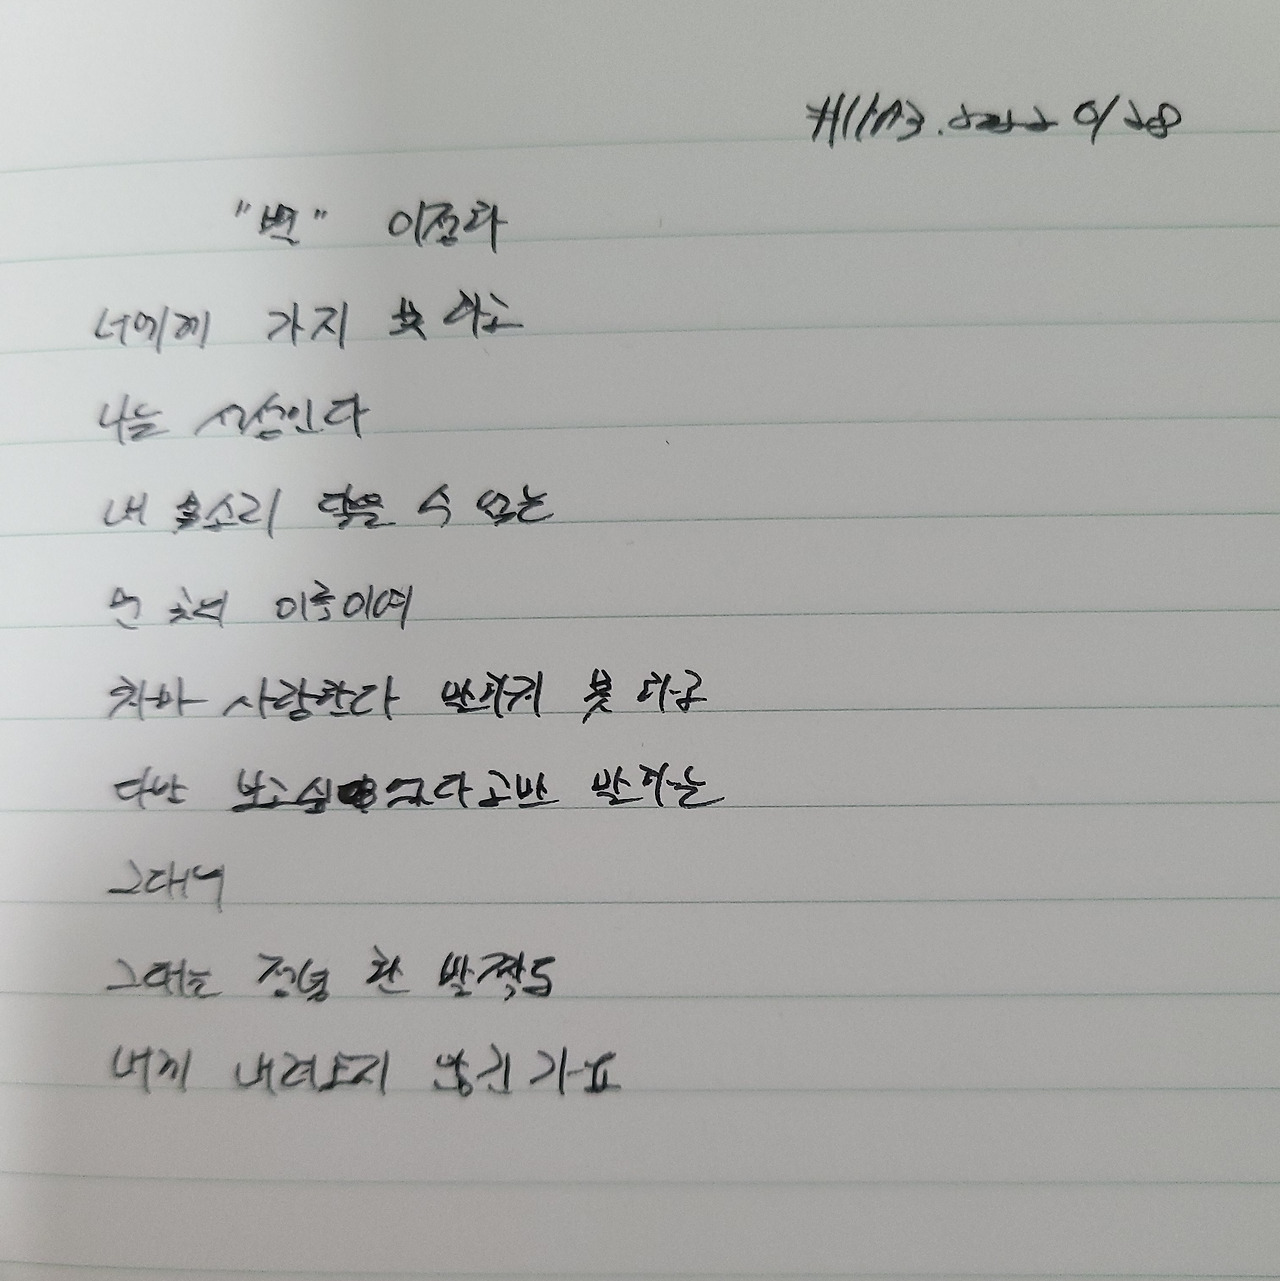 "별" 이정하
너에게 가지 못하고
나는 서성인다
내 목소리 닿을 수 없는
먼 곳의 이름이여
차마 사랑한다 말하지 못하고
다만 보고싶다고만 말하는
그대여
그대는 정녕 한 발짝도
내게 내려오지 않긴가요